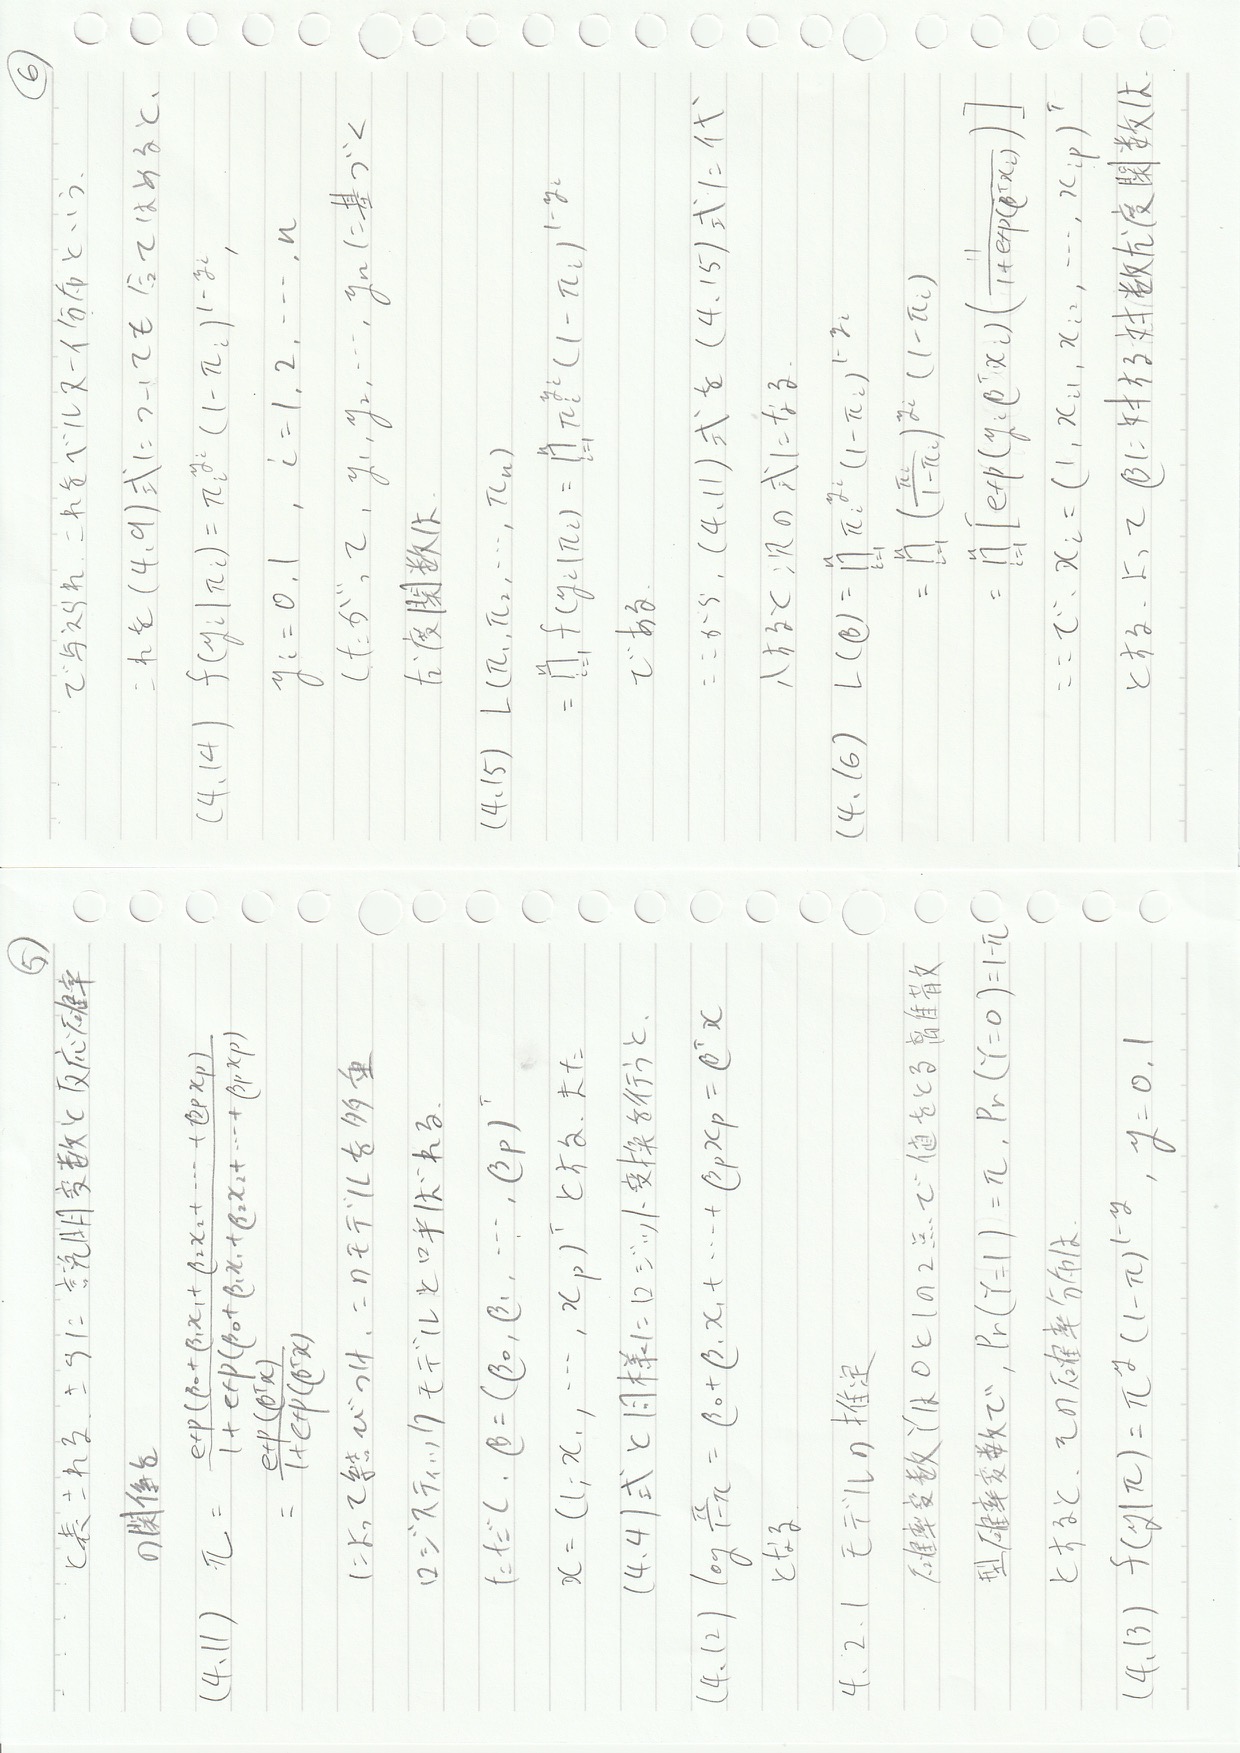 ⑤
と表される. さらに 説明変数と反応確率
の関係を
(4.11) π = exp(β₀+β₁x₁+β₂x₂+ ··· +βpxp) / 1+exp(β₀+β₁x₁+β₂x₂+ ··· +βpxp)
= exp(βᵀx) / 1+exp(βᵀx)
によって結びつけ, このモデルを多重
ロジスティックモデルと呼ばれる.
ただし, β=(β₀, β₁, ···, βp)ᵀ
x=(1, x₁, ···, xp)ᵀ とする. また
(4.4)式と同様にロジット変換を行うと,
(4.12) log π/1-π = β₀+β₁x₁+ ··· +βpxp = βᵀx
となる
4.2.1 モデルの推定
確率変数Yは0と1の2点で値をとる離散
型確率変数で, Pr(Y=1)=π, Pr(Y=0)=1-π
とすると, その確率分布は.
(4.13) f(y|π)=π^y (1-π)^1-y, y=0,1
⑥
で与えられ, これをベルヌーイ分布という.
これを(4.9)式についても当てはめると,
(4.14) f(yi|πi)=πi^yi (1-πi)^1-yi,
yi=0,1 , i=1,2, ···, n
したがって, y₁, y₂, ···, yn に基づく
尤度関数は.
(4.15) L(π₁, π₂, ···, πn)
= ∏_{i=1}^n f(yi|πi) = ∏_{i=1}^n πi^yi (1-πi)^1-yi
である.
ここから, (4.11)式を(4.15)式に代
入すると次の式になる.
(4.16) L(β)= ∏_{i=1}^n πi^yi (1-πi)^1-yi
= ∏_{i=1}^n (πi/1-πi)^yi (1-πi)
= ∏_{i=1}^n [exp(yi βᵀxi)(1/1+exp(βᵀxi))]
ここで, xi=(1, xi1, xi2, ···, xip)ᵀ
とする. よってβに対する対数尤度関数は.